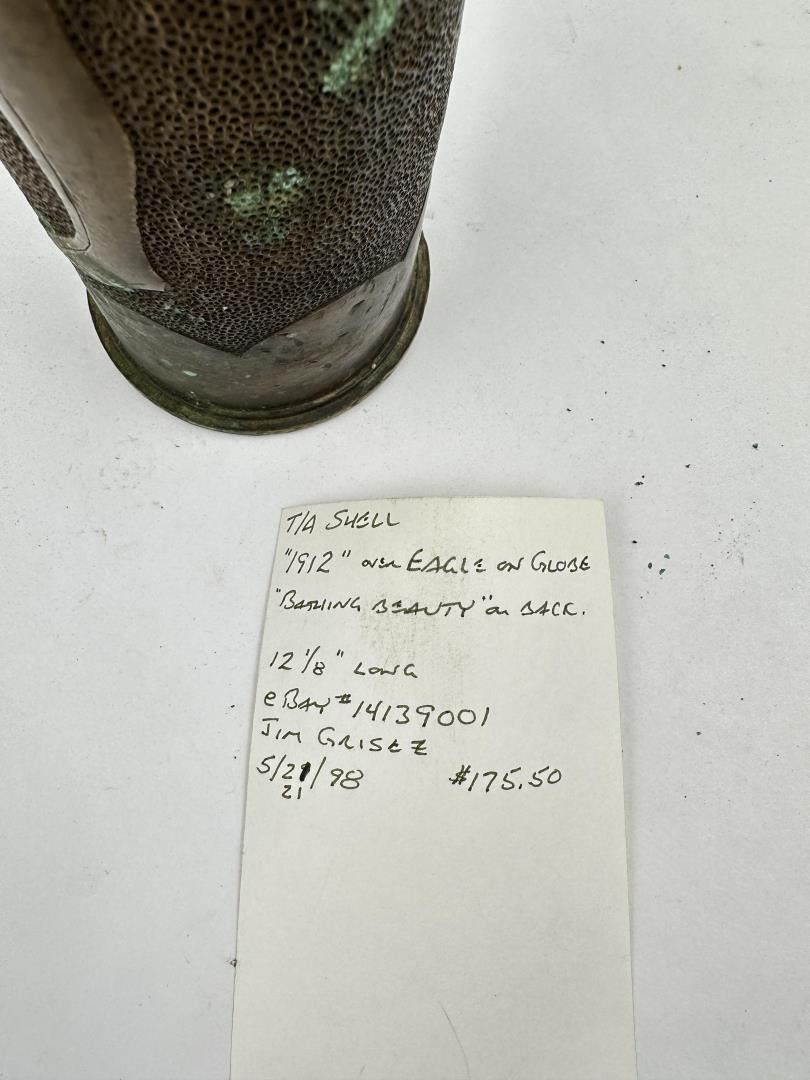 T/A SHELL
"1912" over EAGLE on GLOBE
"BATHING BEAUTY" on BACK.
12 1/8" LONG
eBAY #14139001
JIM GRISEZ
5/21/98 $175.50
21